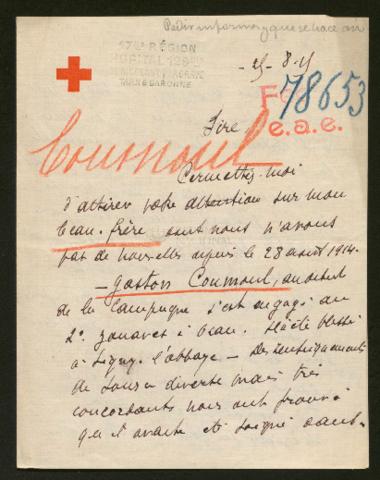 Pedir informes y que se hace con
17e RÉGION
HÔPITAL
TARN & GARONNE
- 25-8-15
78653
Fo
e.a.e.
Sire,
Coumoul
Permettez-moi
d'attirer votre attention sur mon
beau-frère dont nous n'avons
pas de nouvelles depuis le 28 août 1914.
- Gaston Coumoul, au début
de la campagne s'est engagé au
2e zouaves à Oran. Il a été blessé
à Signy-l'abbaye - Des renseignements
de source diverse mais très
concordants nous ont prouvé
qu'il avait été soigné dans